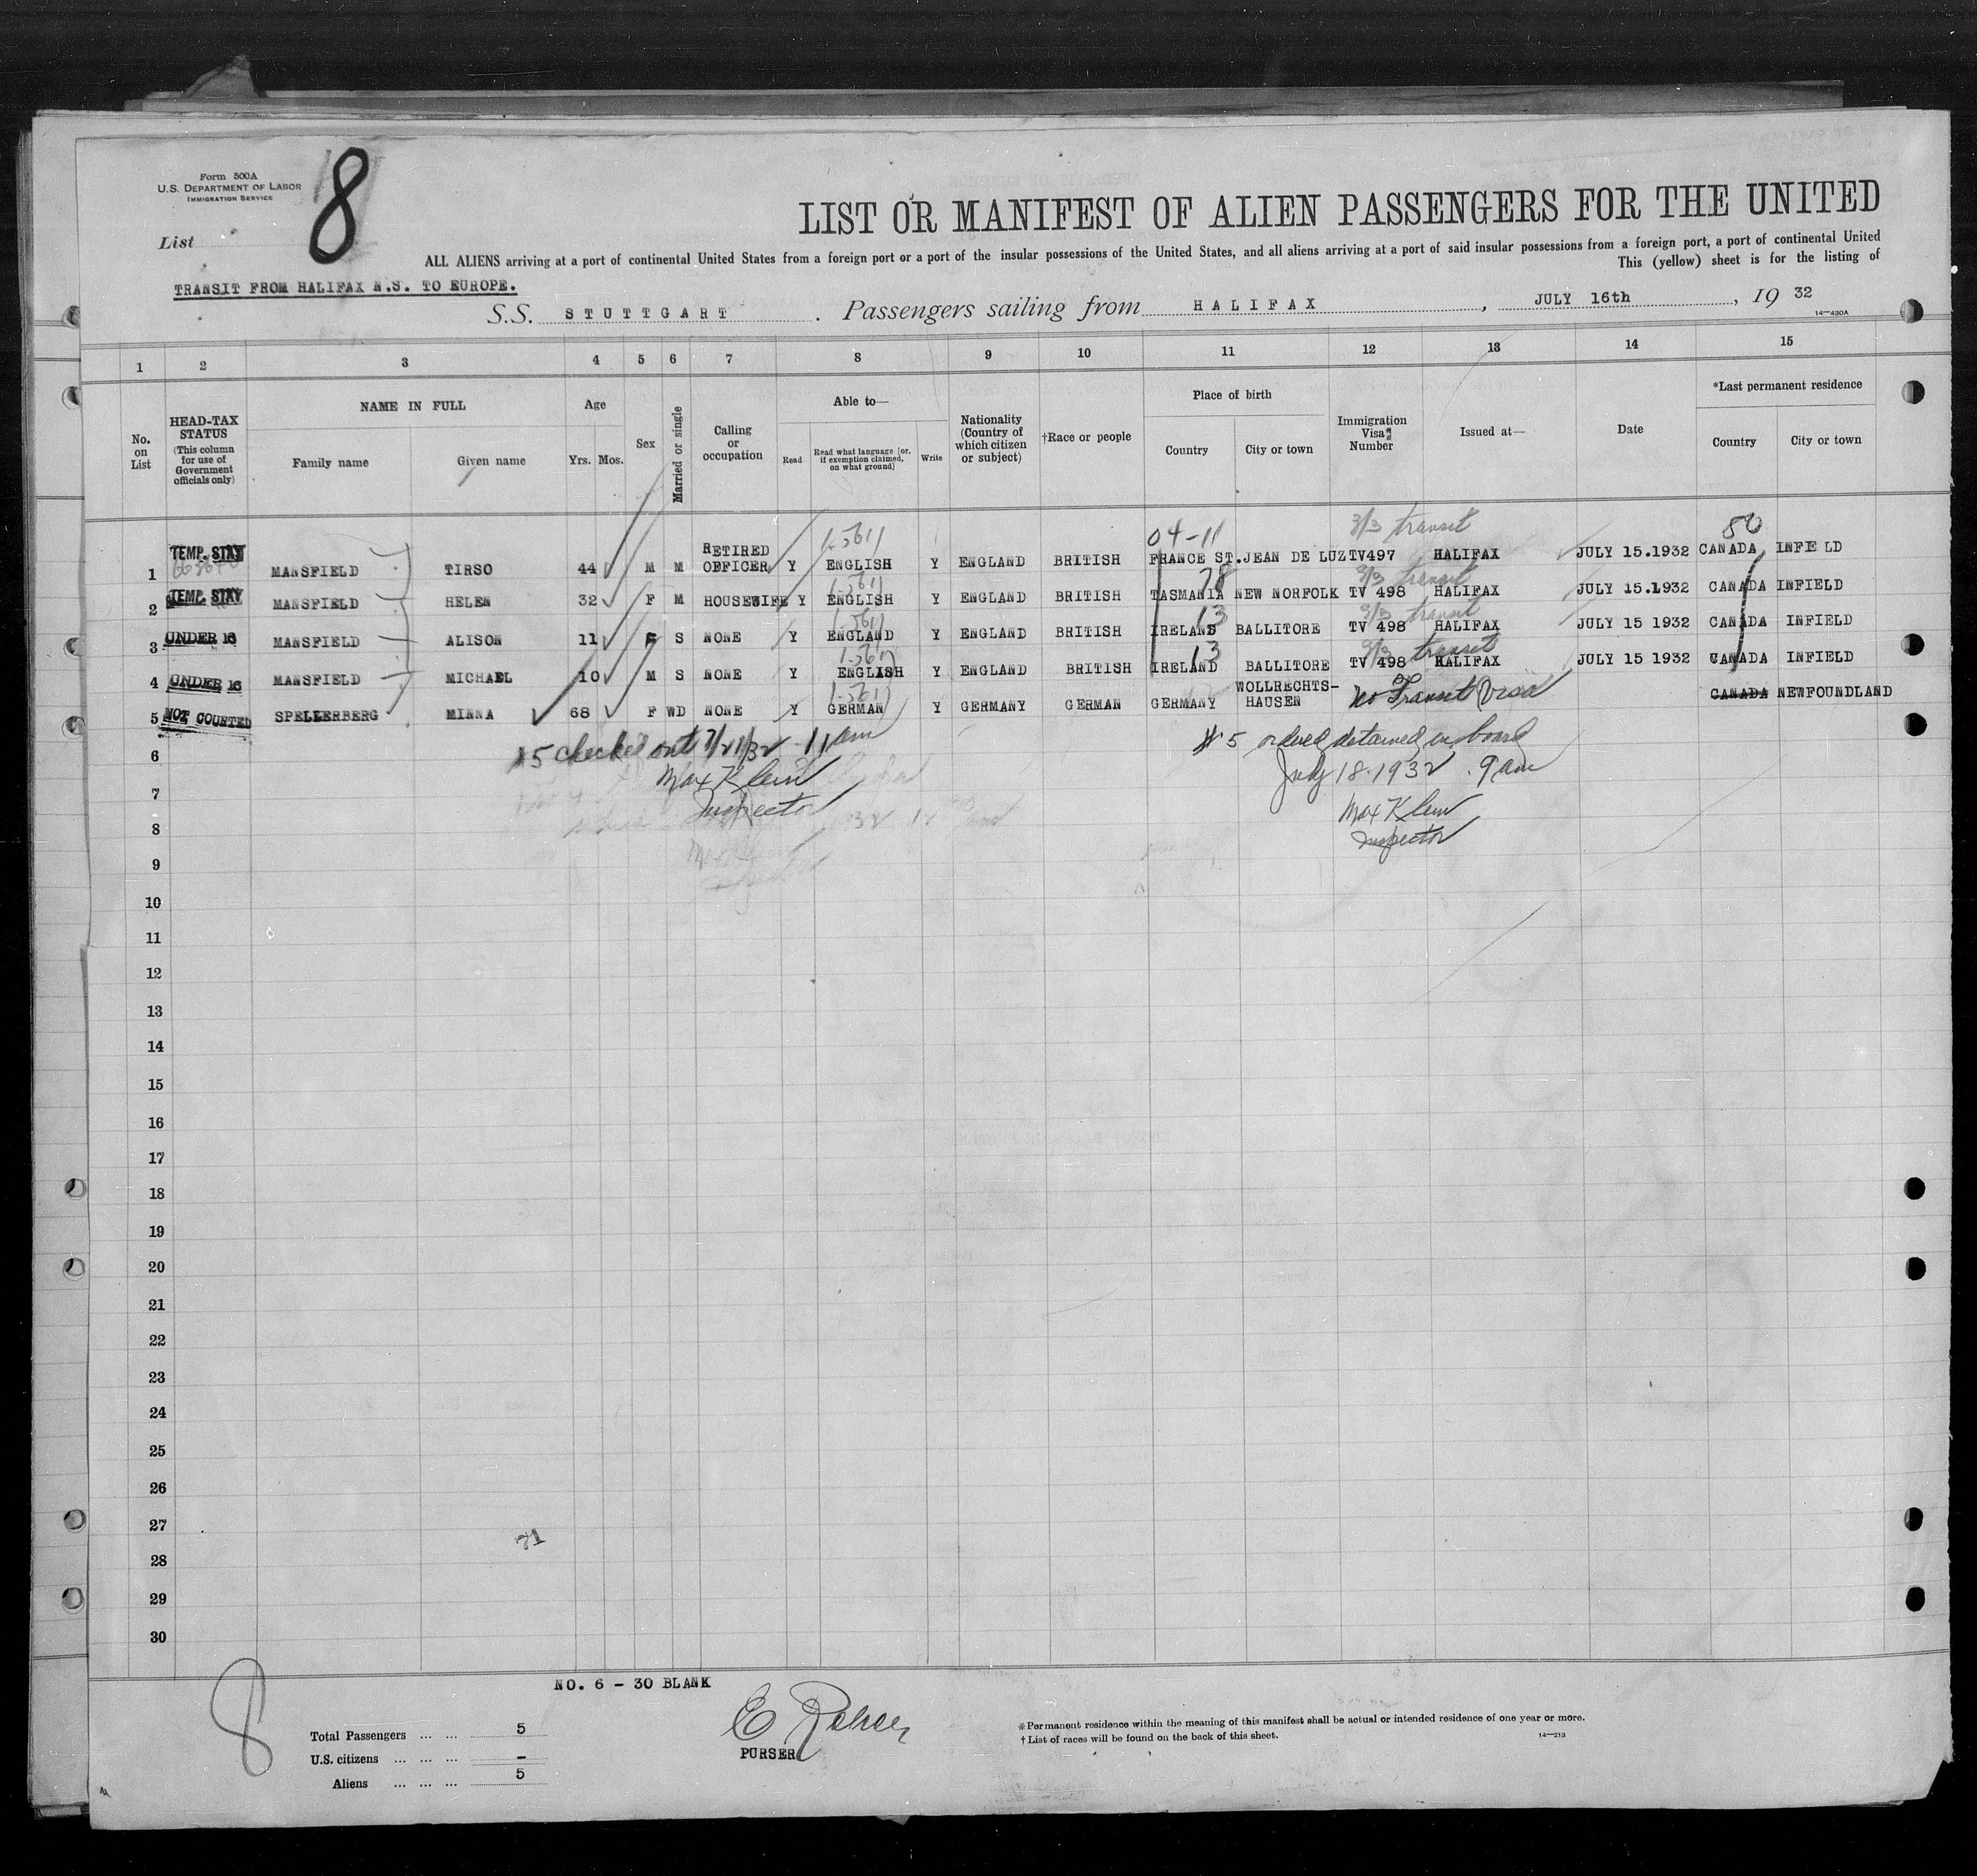 Form 500A
U.S. DEPARTMENT OF LABOR
IMMIGRATION SERVICE
8
List
LIST OR MANIFEST OF ALIEN PASSENGERS FOR THE UNITED
ALL ALIENS arriving at a port of continental United States from a foreign port or a port of the insular possessions of the United States, and all aliens arriving at a port of said insular possessions from a foreign port, a port of continental United
This (yellow) sheet is for the listing of
TRANSIT FROM HALIFAX N.S. TO EUROPE.
S.S. STUTTGART. Passengers sailing from HALIFAX, JULY 16th, 19 32
14—430A
1 2 3 4 5 6 7 8 9 10 11 12 13 14 15
No. on List
HEAD-TAX STATUS (This column for use of Government officials only)
NAME IN FULL
Family name Given name
Age
Yrs. Mos.
Sex
Married or single
Calling or occupation
Able to—
Read
Read what language [or, if exemption claimed, on what ground]
Write
Nationality (Country of which citizen or subject)
†Race or people
Place of birth
Country City or town
Immigration Visa Number
Issued at—
Date
*Last permanent residence
Country City or town
04-11 3/3 transit 80
1 TEMP. STAY MANSFIELD TIRSO 44 M M RETIRED OFFICER Y ENGLISH Y ENGLAND BRITISH FRANCE ST.JEAN DE LUZ TV497 HALIFAX JULY 15.1932 CANADA INFIELD
78 3/3 transit
2 TEMP. STAY MANSFIELD HELEN 32 F M HOUSEWIFE Y ENGLISH Y ENGLAND BRITISH TASMANIA NEW NORFOLK TV 498 HALIFAX JULY 15.1932 CANADA INFIELD
13 3/3 transit
3 UNDER 16 MANSFIELD ALISON 11 F S NONE Y ENGLAND Y ENGLAND BRITISH IRELAND BALLITORE TV 498 HALIFAX JULY 15 1932 CANADA INFIELD
13 3/3 transit
4 UNDER 16 MANSFIELD MICHAEL 10 M S NONE Y ENGLISH Y ENGLAND BRITISH IRELAND BALLITORE TV 498 HALIFAX JULY 15 1932 CANADA INFIELD
5 NOT COUNTED SPELLERBERG MINNA 68 F WD NONE Y GERMAN Y GERMANY GERMAN GERMANY WOLLRECHTS-HAUSEN No Transit Visa CANADA NEWFOUNDLAND
#5 checked out 7/21/32 11 am
Max Klein
Inspector
#5 ordered detained on board
July 18.1932 9 am
Max Klein
Inspector
6
7
8
9
10
11
12
13
14
15
16
17
18
19
20
21
22
23
24
25
26
27
71
28
29
30
NO. 6 - 30 BLANK
8
Total Passengers ... ... 5
U.S. citizens ... ... ... -
Aliens ... ... ... 5
PURSER
*Permanent residence within the meaning of this manifest shall be actual or intended residence of one year or more.
† List of races will be found on the back of this sheet.
14—213